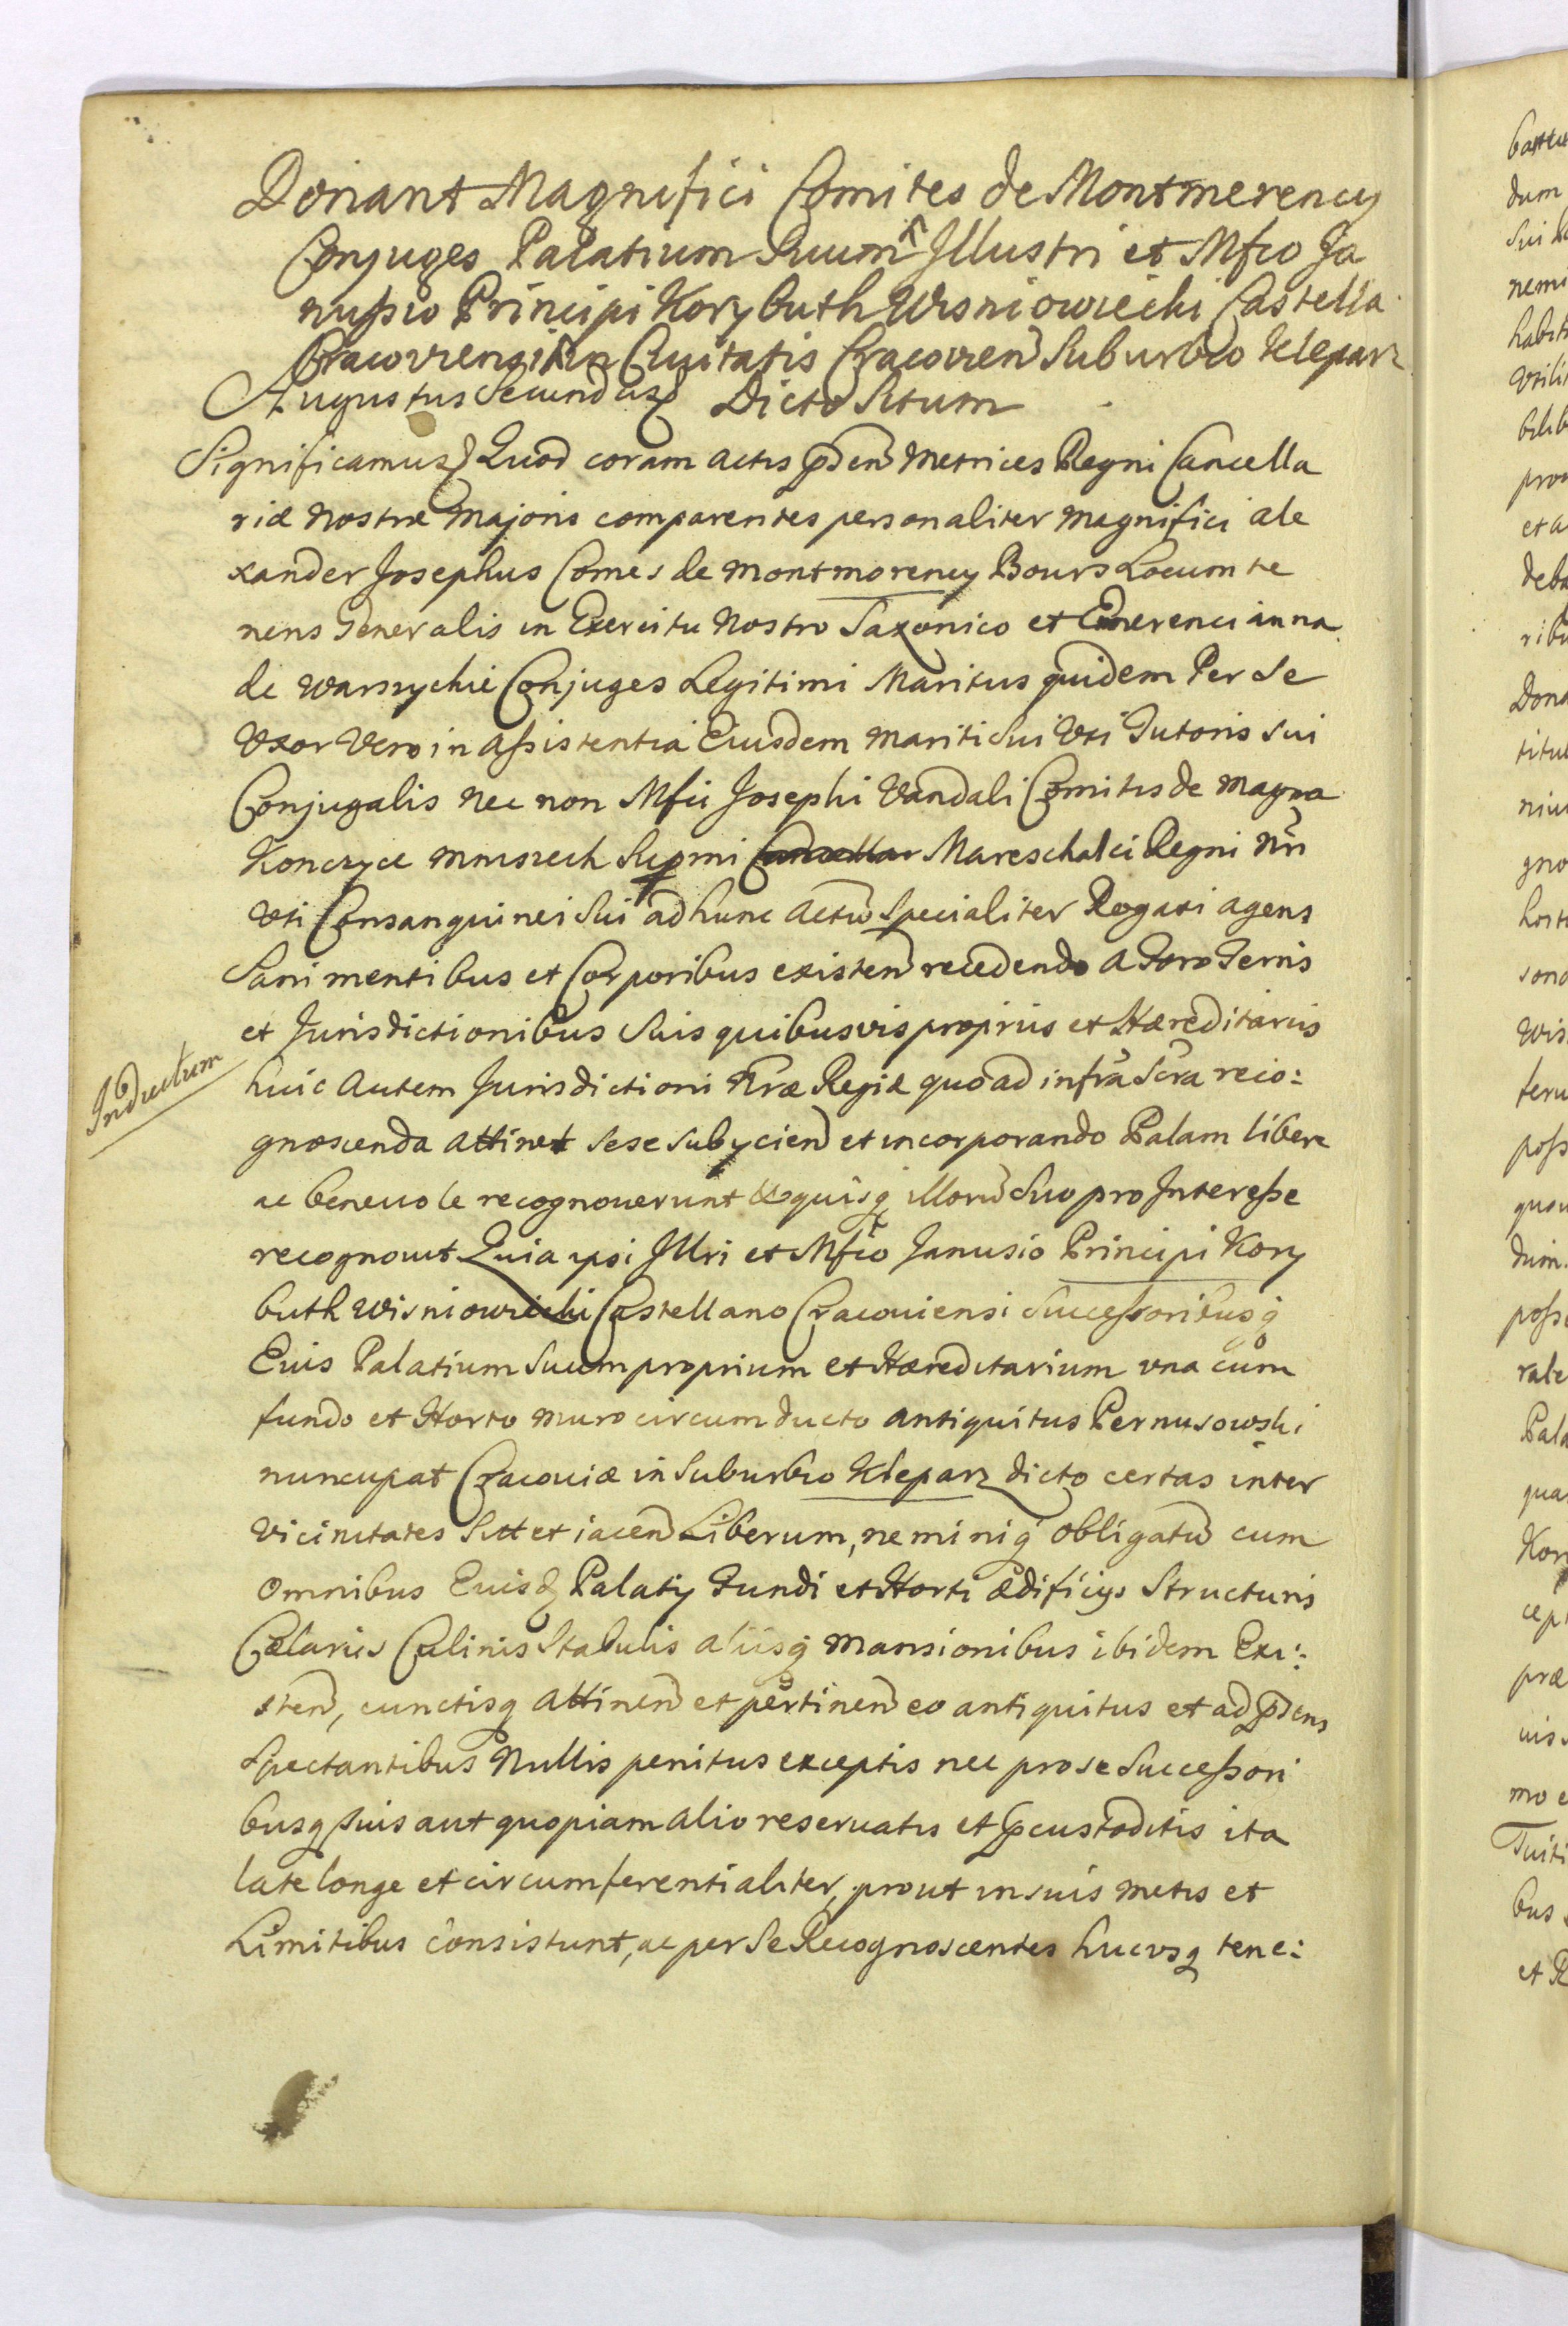 Donant Magnifici Comites de Montmerency
Conjuges Palatium Suum Illustri et Mfco Ja
nussio Principi Korybuth Wisniowiecki Castella
Cracoviensi in Civitatis Cracovien Suburbio Klepare
Augustus Secundus Dicto Situm
Significamus Quod coram actis pden Metrices Regni Cancella
riæ Nostræ Majoris comparentes personaliter Magnifici Ale
xander Josephus Comes de Montmorency Bours Locumte
nens Generalis in Exercitu Nostro Saxonico et Emerenci anna
de Warszyckie Conjuges Legitimi Maritus quidem Per Se
Uxor Vero in Assistentia Eiusdem Mariti Sui Uti Tutoris Sui
Conjugalis Nec non Mfci Josephi Vandali Comitis de Magna
Konczyce Mniszech Supmi Mareschalci Regni Nri
Uti Consanguinei Sui ad hunc Actu Specialiter Rogati agens
Sani mentibus et Corporibus existen recedendo a Foro Terris
et Jurisdictionibus Suis quibusvis propriis et Hæreditariis
Inductum
huic Autem Jurisdictioni Nræ Regiæ quo ad infra Scra reco:
gnoscenda attinet sese subycien et incorporando Palam libere
ac benevole recognoverunt et quisq illoru Suo pro Interesse
recognovit Quia ipsi Illri et Mfco Janusio Principi Kory
buth Wisniowiecki Castellano Cracoviensi Successoribusq
Euis Palatium Suum proprium et Hæreditarium una cum
fundo et Horto muro circumducto antiquitus Pernusowski
nuncupat Cracoviæ in Suburbio Kleparz dicto certas inter
Vicinitates Sitt et iacen Liberum, neminiq obligatu cum
Omnibus Euisd Palaty Fundi et Horti ædificiys Structuris
Cælariis Culinis Stabulis aliisq mansionibus ibidem Exi:
sten, cunctisq attinen et pertinen eo antiquitus et ad pdens
spectantibus Nullis penitus exceptis nec pro se Successori
busq Suis aut quopiam alio reservatis et pcustoditis ita
late longe et circumferentialiter, prout in suis metis et
Limitibus consistunt, ac per Se Recognoscentes hucusq tene: